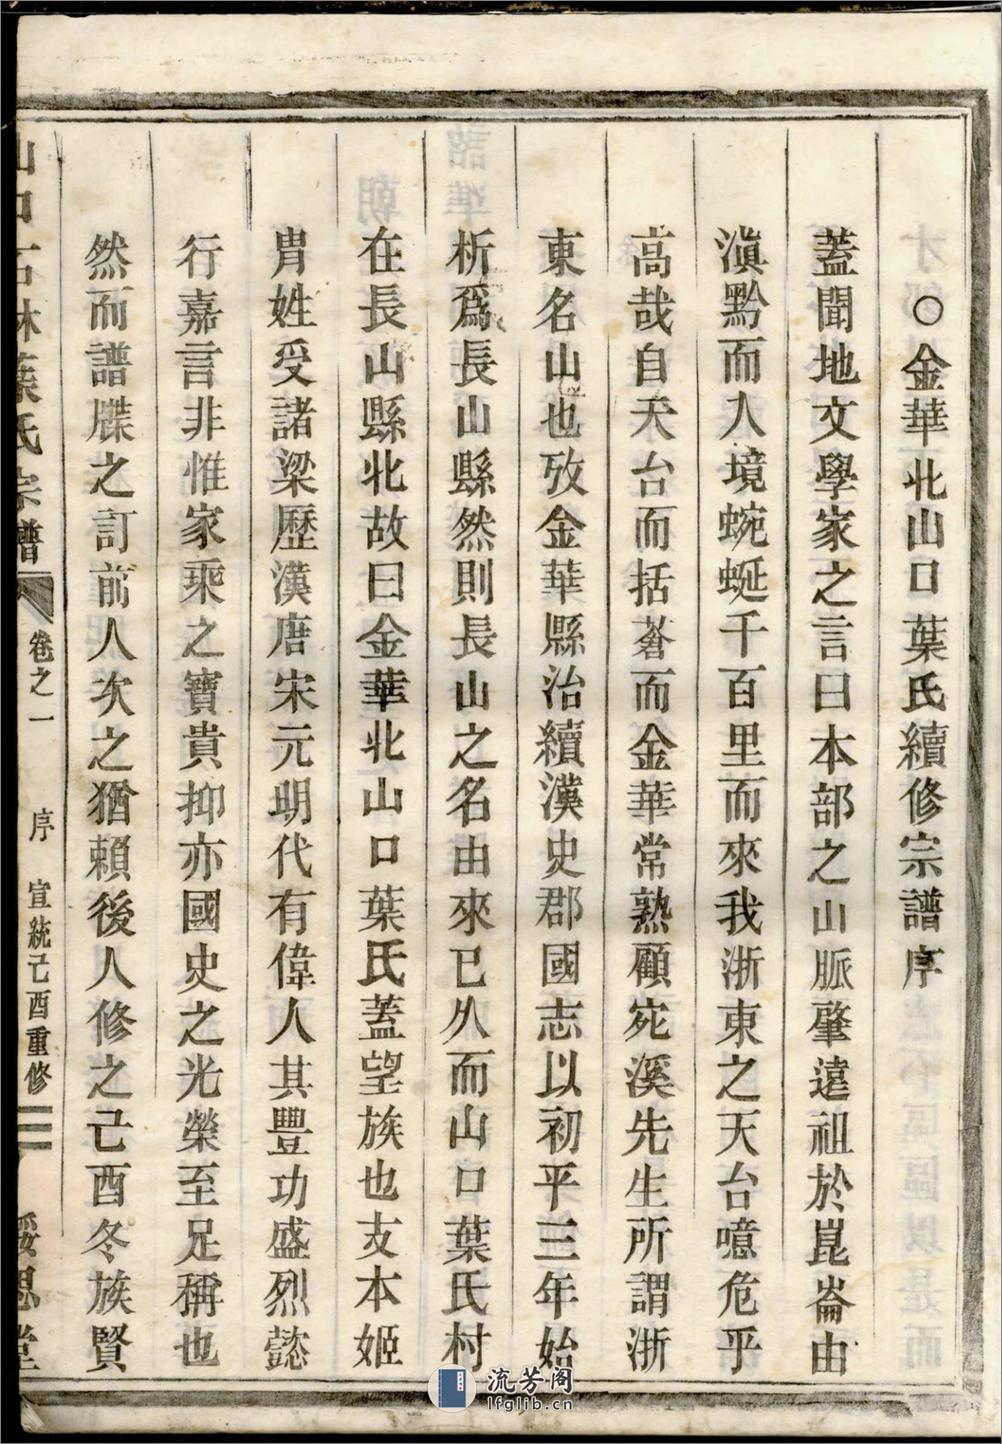 ○金華北山口葉氏續修宗譜序
蓋聞地文學家之言曰本部之山脈肇遠祖於崑崙由
滇黔而入境蜿蜒千百里而來我浙東之天台噫危乎
高哉自天台而括蒼而金華常熟顧宛溪先生所謂浙
東名山也攷金華縣治續漢史郡國志以初平三年始
析爲長山縣然則長山之名由來已久而山口葉氏村
在長山縣北故曰金華北山口葉氏蓋望族也支本姬
胄姓受諸梁歷漢唐宋元明代有偉人其豐功盛烈懿
行嘉言非惟家乘之寶貴抑亦國史之光榮至足稱也
然而譜牒之訂前人次之猶賴後人修之己酉冬族賢
山口石林葉氏宗譜
卷之一
序
宣統己酉重修
流芳阁
lfglib.cn